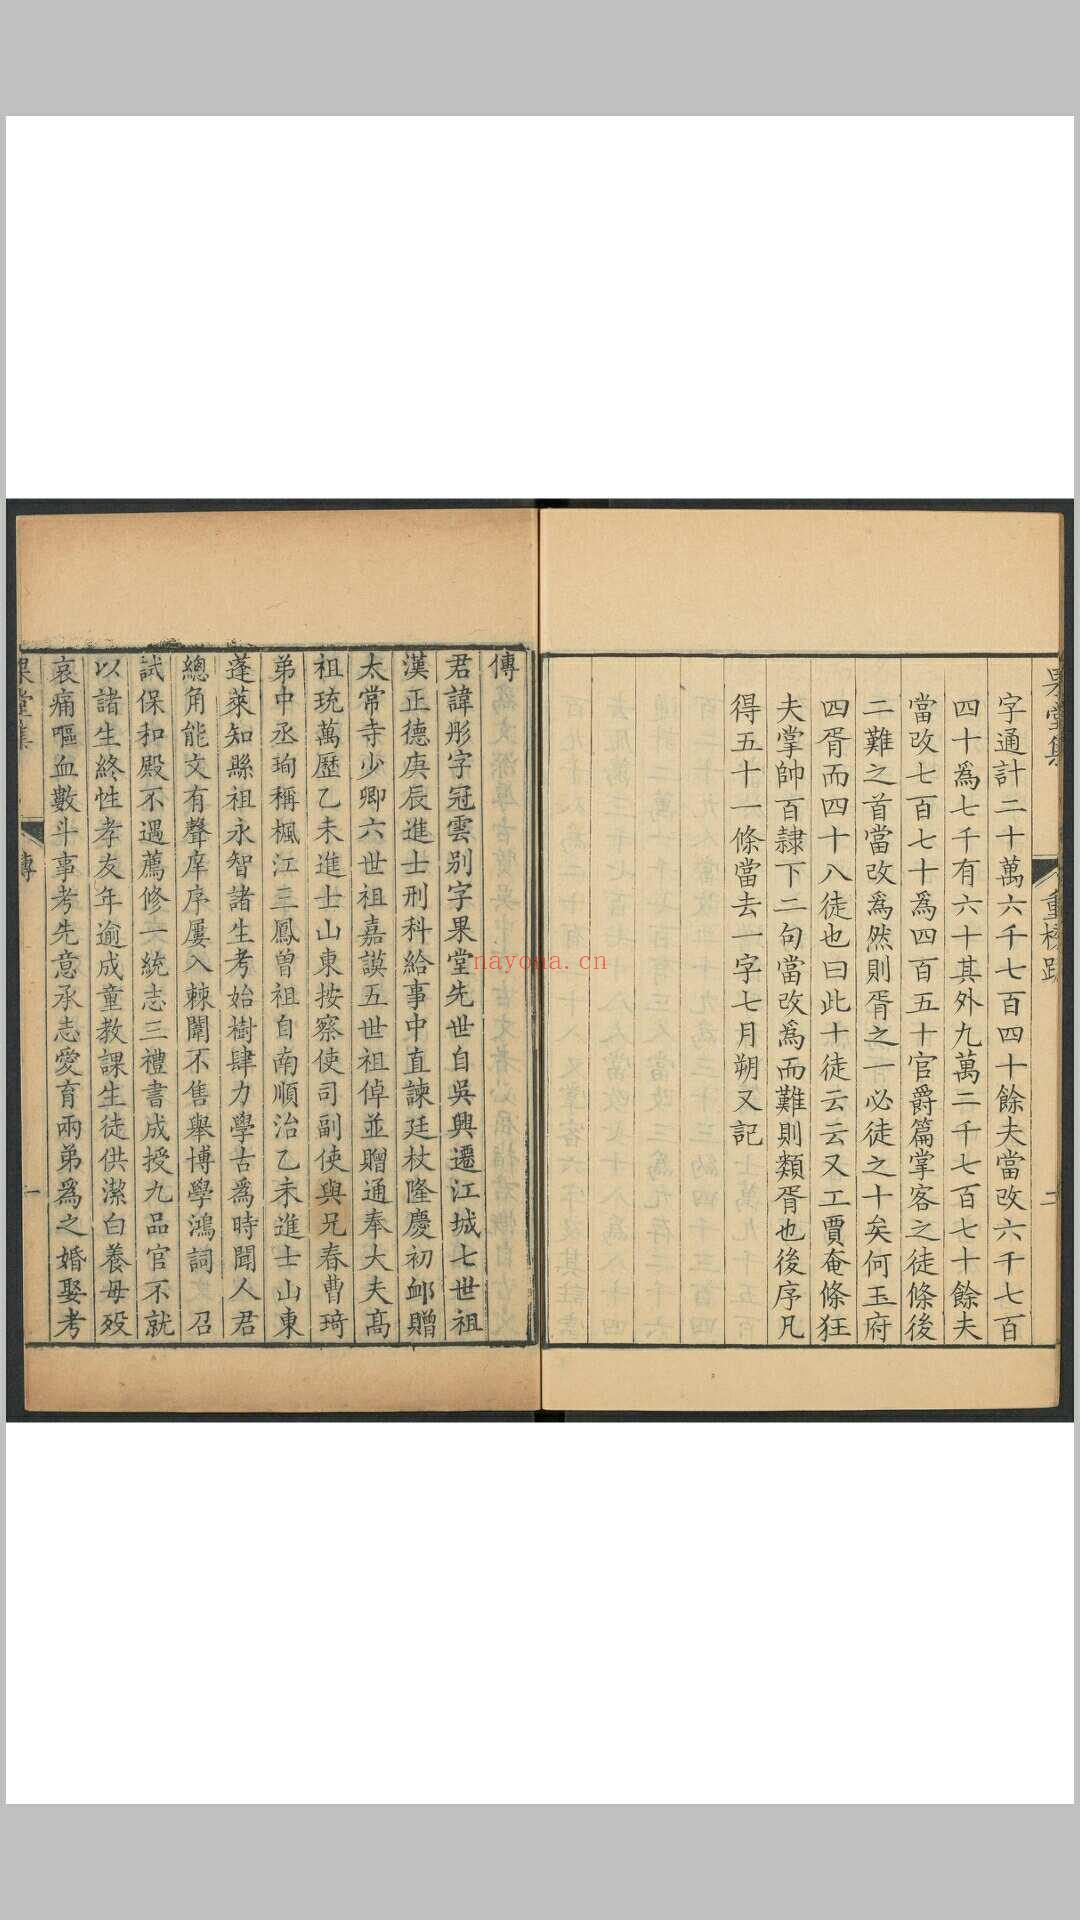 果堂集
重校跋
二
字通計二十萬六千七百四十餘夫當改六千七百
四十爲七千有六十其外九萬二千七百七十餘夫
當改七百七十爲四百五十官爵篇掌客之徒條後
二難之首當改爲然則胥之一必徒之十矣何玉府
四胥而四十八徒也曰此十徒云云又工賈奄條狂
夫掌帥百隸下二句當改爲而難則類胥也後序凡
得五十一條當去一字七月朔又記
傳
君諱彤字冠雲别字果堂先世自吳興遷江城七世祖
漢正德庚辰進士刑科給事中直諫廷杖隆慶初卹贈
太常寺少卿六世祖嘉謨五世祖倬並贈通奉大夫高
祖珫萬歷乙未進士山東按察使司副使與兄春曹琦
弟中丞珣稱楓江三鳳曾祖自南順治乙未進士山東
蓬萊知縣祖永智諸生考始樹肆力學古爲時聞人君
總角能文有聲庠序屢入棘闈不售舉博學鴻詞 召
試保和殿不遇薦修一統志三禮書成授九品官不就
以諸生終性孝友年逾成童教課生徒供潔白養母歿
哀痛嘔血數斗事考先意承志愛育兩弟爲之婚娶考
果堂集
傳
一
nayona.cn